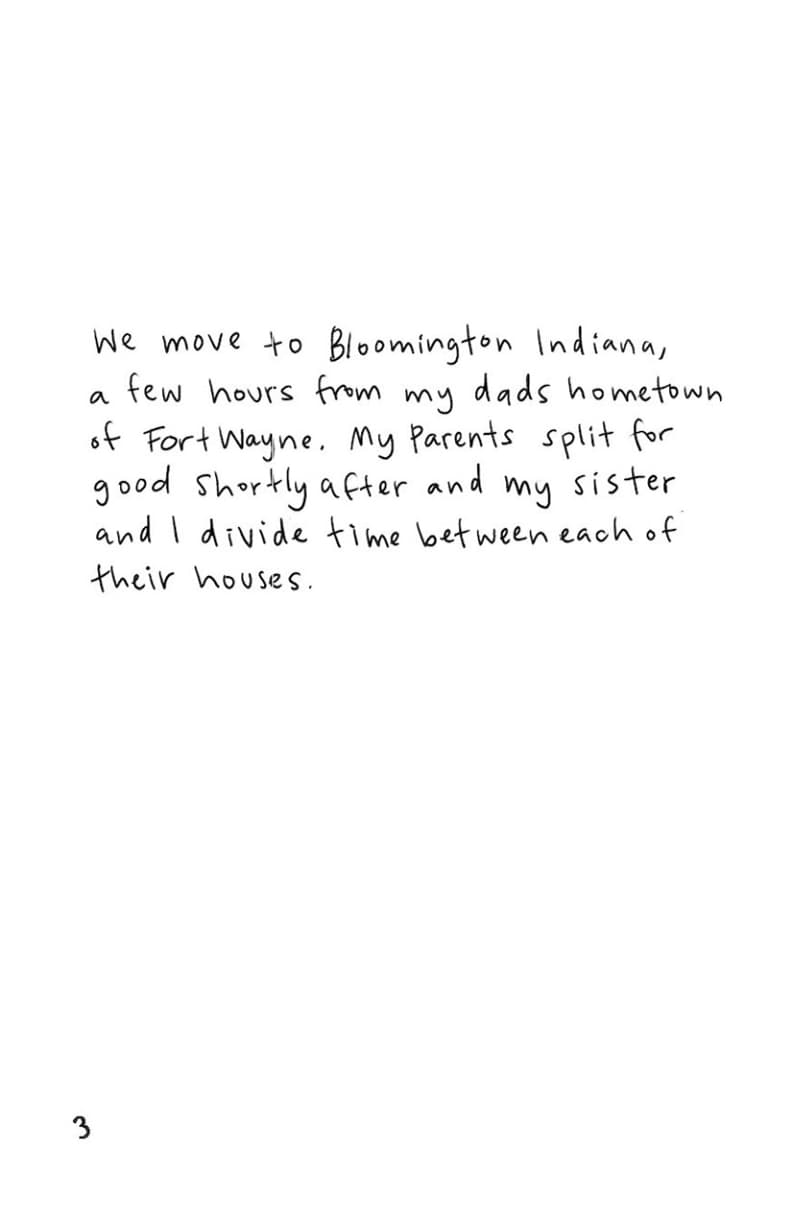 We move to Bloomington Indiana,
a few hours from my dads hometown
of Fort Wayne. My Parents split for
good shortly after and my sister
and I divide time between each of
their houses.
3